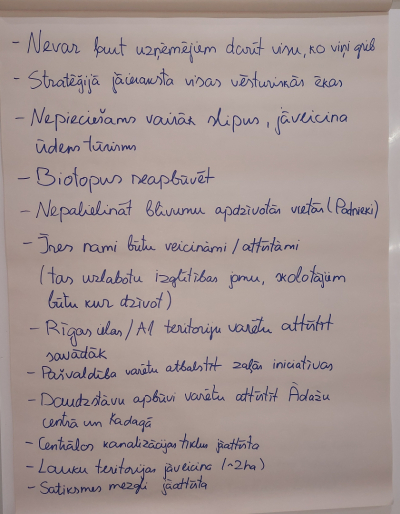 - Nevar ļaut uzņēmējiem darīt visu, ko viņi grib
- Stratēģijā jāieraksta visas vēsturiskās ēkas
- Nepieciešams vairāk slipus, jāveicina
ūdens tūrisms
- Biotopus neapbūvēt
- Nepalielināt blīvumu apdzīvotās vietās (Podnieki)
- Īres nami būtu veicināmi/attīstāmi
(tas uzlabotu izglītības jomu, skolotājiem
būtu kur dzīvot)
- Rīgas ielas/A1 teritoriju varētu attīstīt
savādāk
- Pašvaldība varētu atbalstīt zaļās iniciatīvas
- Daudzstāvu apbūvi varētu attīstīt Ādažu
centrā un Kadagā
- Centrālos kanalizācijas tīklus jāattīsta
- Lauku teritorijas jāveicina (~2ha)
- Satiksmes mezgli jāattīsta